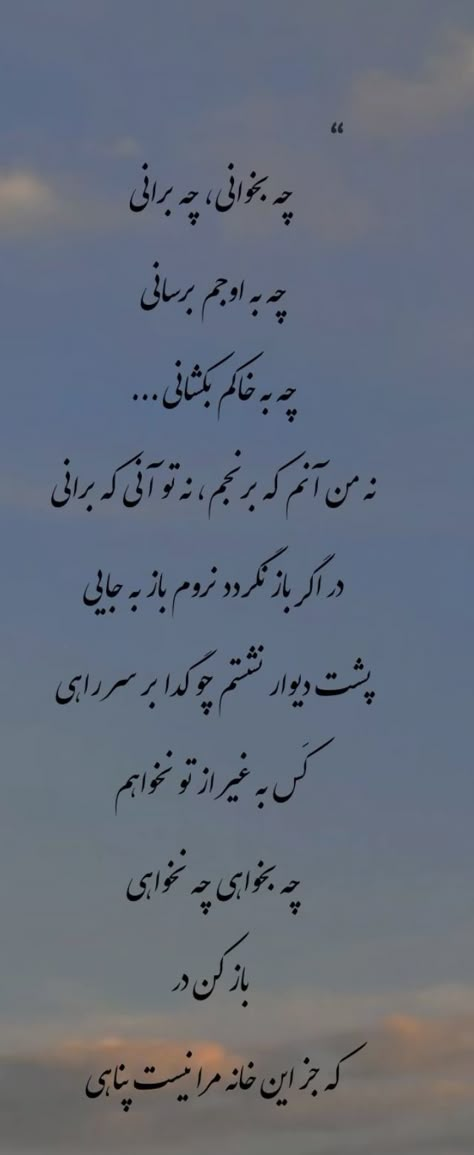 “
چه بخوانی، چه برانی
چه به اوجم برسانی
چه به خاکم بکشانی ...
نه من آنم که برنجم، نه تو آنی که برانی
در اگر باز نگردد نروم باز به جایی
پشت دیوار نشستم چو گدا بر سر راهی
کَس به غیر از تو نخواهم
چه بخواهی چه نخواهی
باز کن در
که جز این خانه مرا نیست پناهی